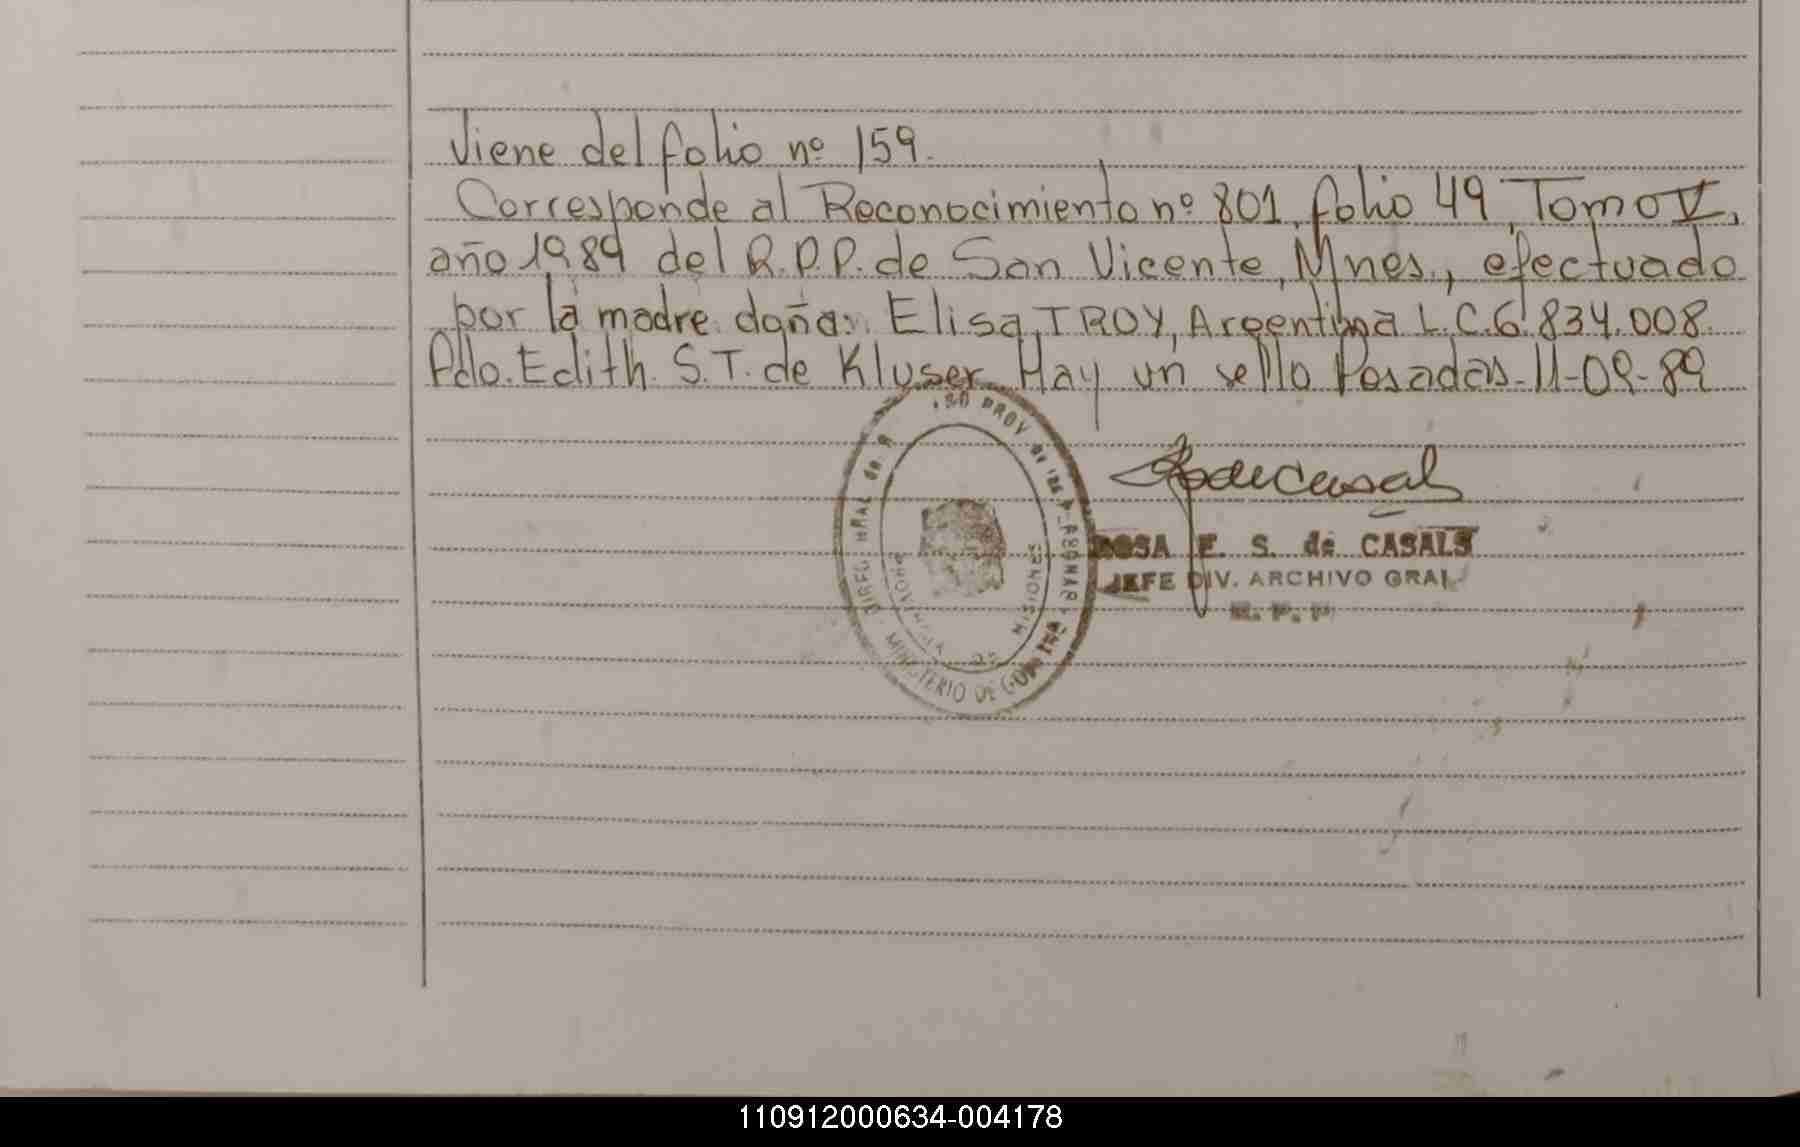 Viene del folio nº 159.
Corresponde al Reconocimiento nº 801, folio 49, Tomo V,
año 1989 del R.P.P. de San Vicente, Mnes., efectuado
por la madre doña: Elisa TROY, Argentina L.C. 6.834.008.
Fdo. Edith S.T. de Kluser Hay un sello Posadas-11-09-89
ROSA E. S. de CASALS
JEFE DIV. ARCHIVO GRAL
R. P. P
MINISTERIO DE
110912000634-004178